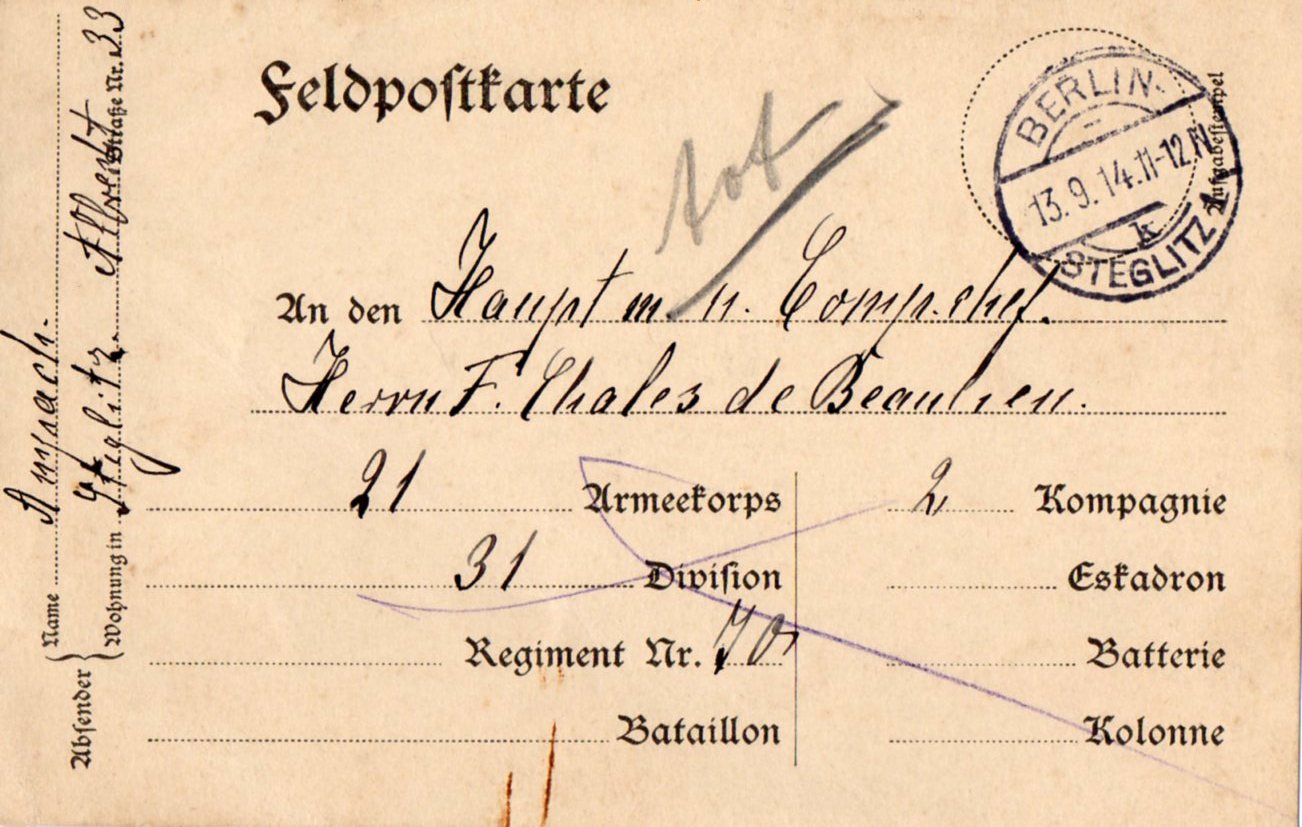 Feldpostkarte
tot
BERLIN.
13.9.14.11-12 N.
k
STEGLITZ 1
Aufgabestempel
An den Hauptm. u. Comp.chef.
Herrn F. Chales de Beaulieu.
21 Armeekorps
31 Division
Regiment Nr. 70
Bataillon
2 Kompagnie
Eskadron
Batterie
Kolonne
Absender
Name
Wohnung in Steglitz. Albrecht Straße Nr. 33